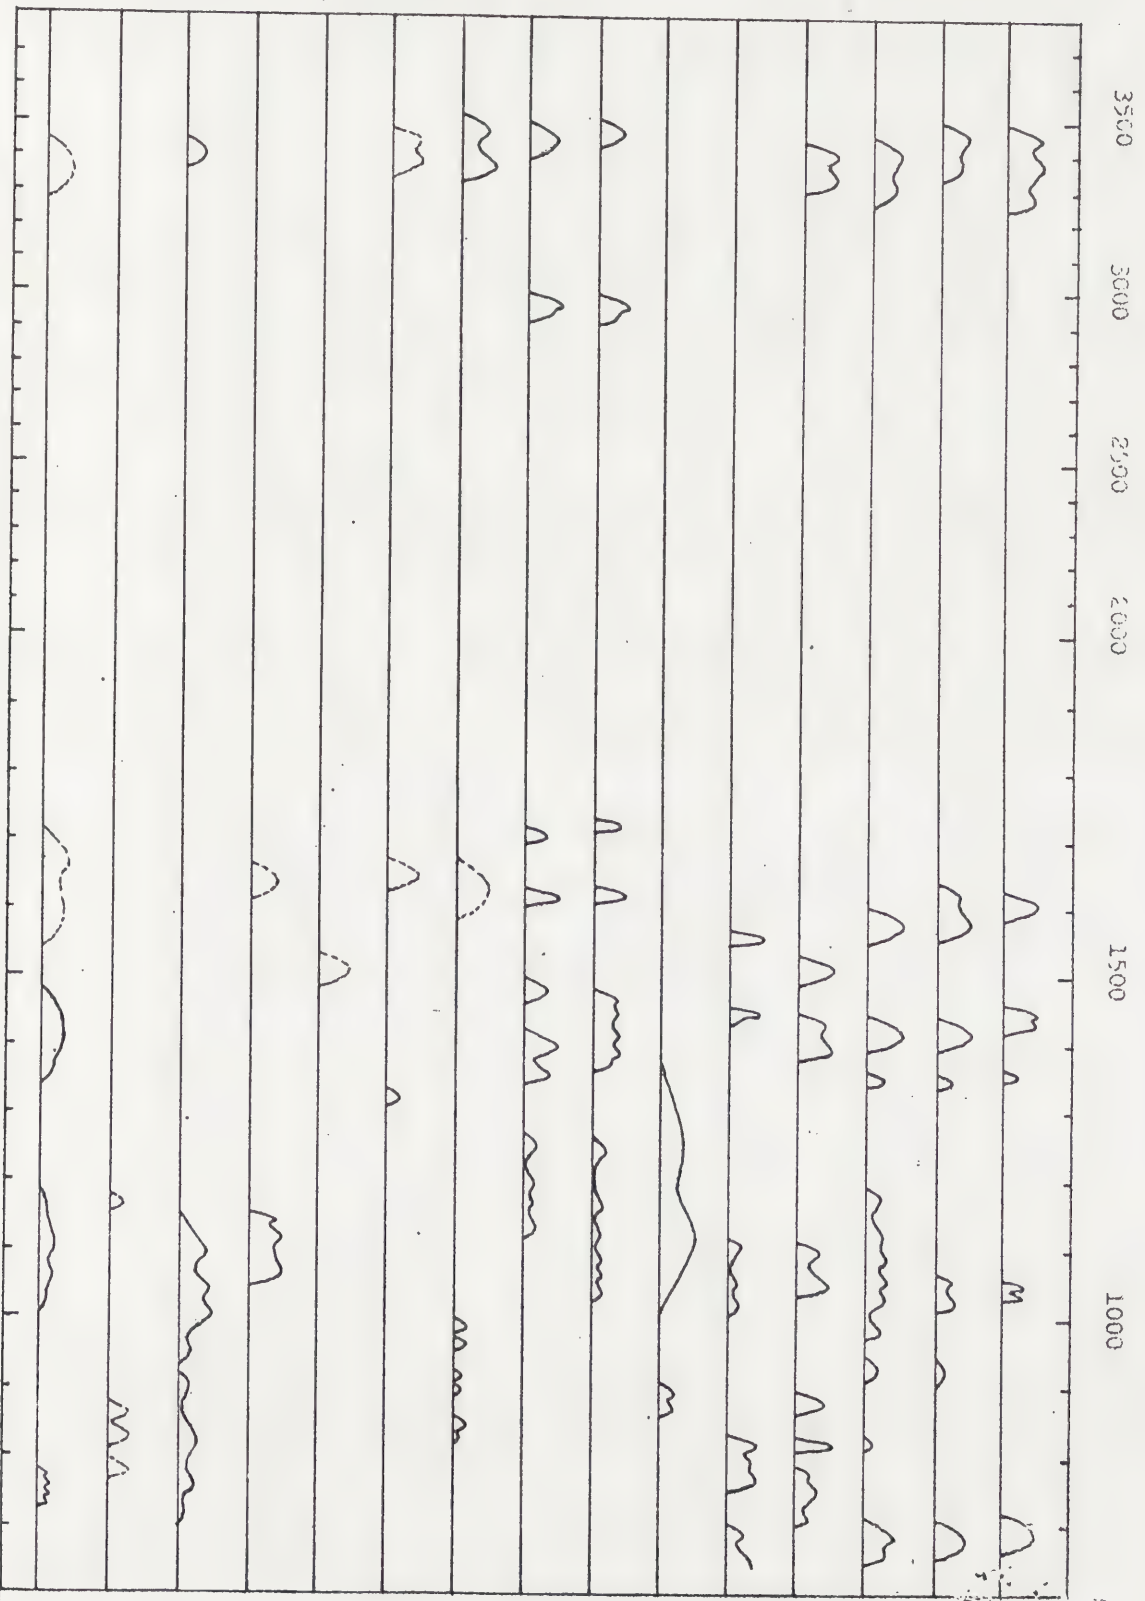 3500
3000
2500
2000
1500
1000